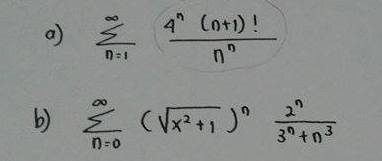 a) $\sum_{n=1}^{\infty} \frac{4^n (n+1)!}{n^n}$
b) $\sum_{n=0}^{\infty} (\sqrt{x^2+1})^n \frac{2^n}{3^n+n^3}$